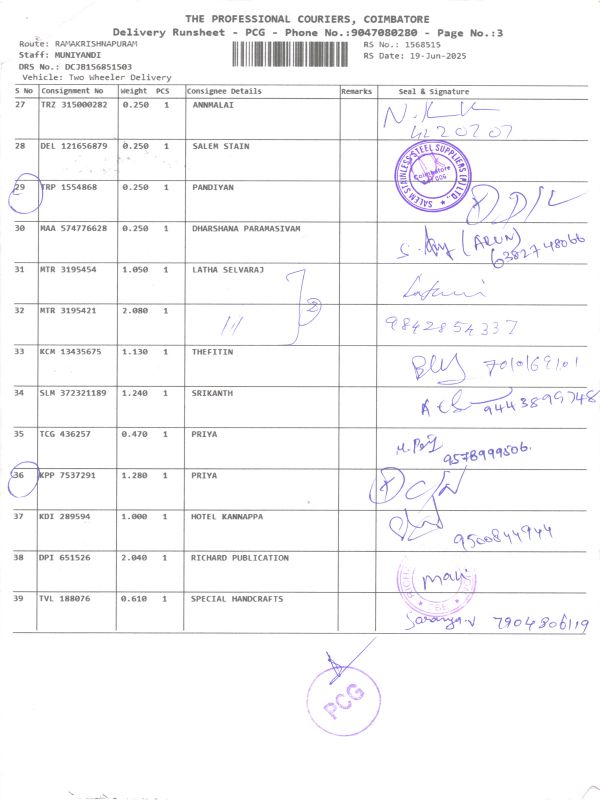 THE PROFESSIONAL COURIERS, COIMBATORE
Delivery Runsheet - PCG - Phone No.:9047080280 - Page No.:3
Route: RAMAKRISHNAPURAM RS No.: 1568515
Staff: MUNIYANDI RS Date: 19-Jun-2025
DRS No.: DCJB156851503
Vehicle: Two Wheeler Delivery
S No Consignment No Weight PCS Consignee Details Remarks Seal & Signature
27 TRZ 315000282 0.250 1 ANNMALAI
28 DEL 121656879 0.250 1 SALEM STAIN
SALEM STAINLESS STEEL SUPPLIERS (P) LTD.
Coimbatore
29 TRP 1554868 0.250 1 PANDIYAN
30 MAA 574776628 0.250 1 DHARSHANA PARAMASIVAM
(ARUN)
6382748066
31 MTR 3195454 1.050 1 LATHA SELVARAJ
2
32 MTR 3195421 2.080 1 9842854337
33 KCM 13435675 1.130 1 THEFITIN
34 SLM 372321189 1.240 1 SRIKANTH
35 TCG 436257 0.470 1 PRIYA
9578999506.
36 KPP 7537291 1.280 1 PRIYA
37 KDI 289594 1.000 1 HOTEL KANNAPPA
9500844944
38 DPI 651526 2.040 1 RICHARD PUBLICATION
39 TVL 188076 0.610 1 SPECIAL HANDCRAFTS
Saranya.v 7904806119
PCG